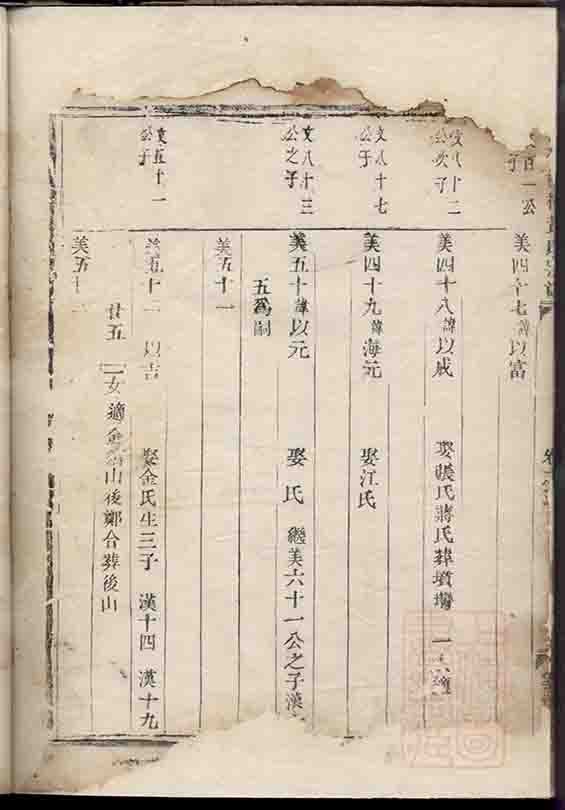 百一公
子
美四十七諱以富
文八十二
公次子
美四十八諱以成
娶張氏蔣氏葬墳塘
文八十七
公子
美四十九諱海元
娶江氏
文八十三
公之子
美五十諱以元
娶 氏 繼美六十一公之子漢
五爲嗣
美五十一
文五十一
公子
美五十二 以吉
娶金氏生三子 漢十四 漢十九
廿五
一女適金山後鄭合葬後山
美五十